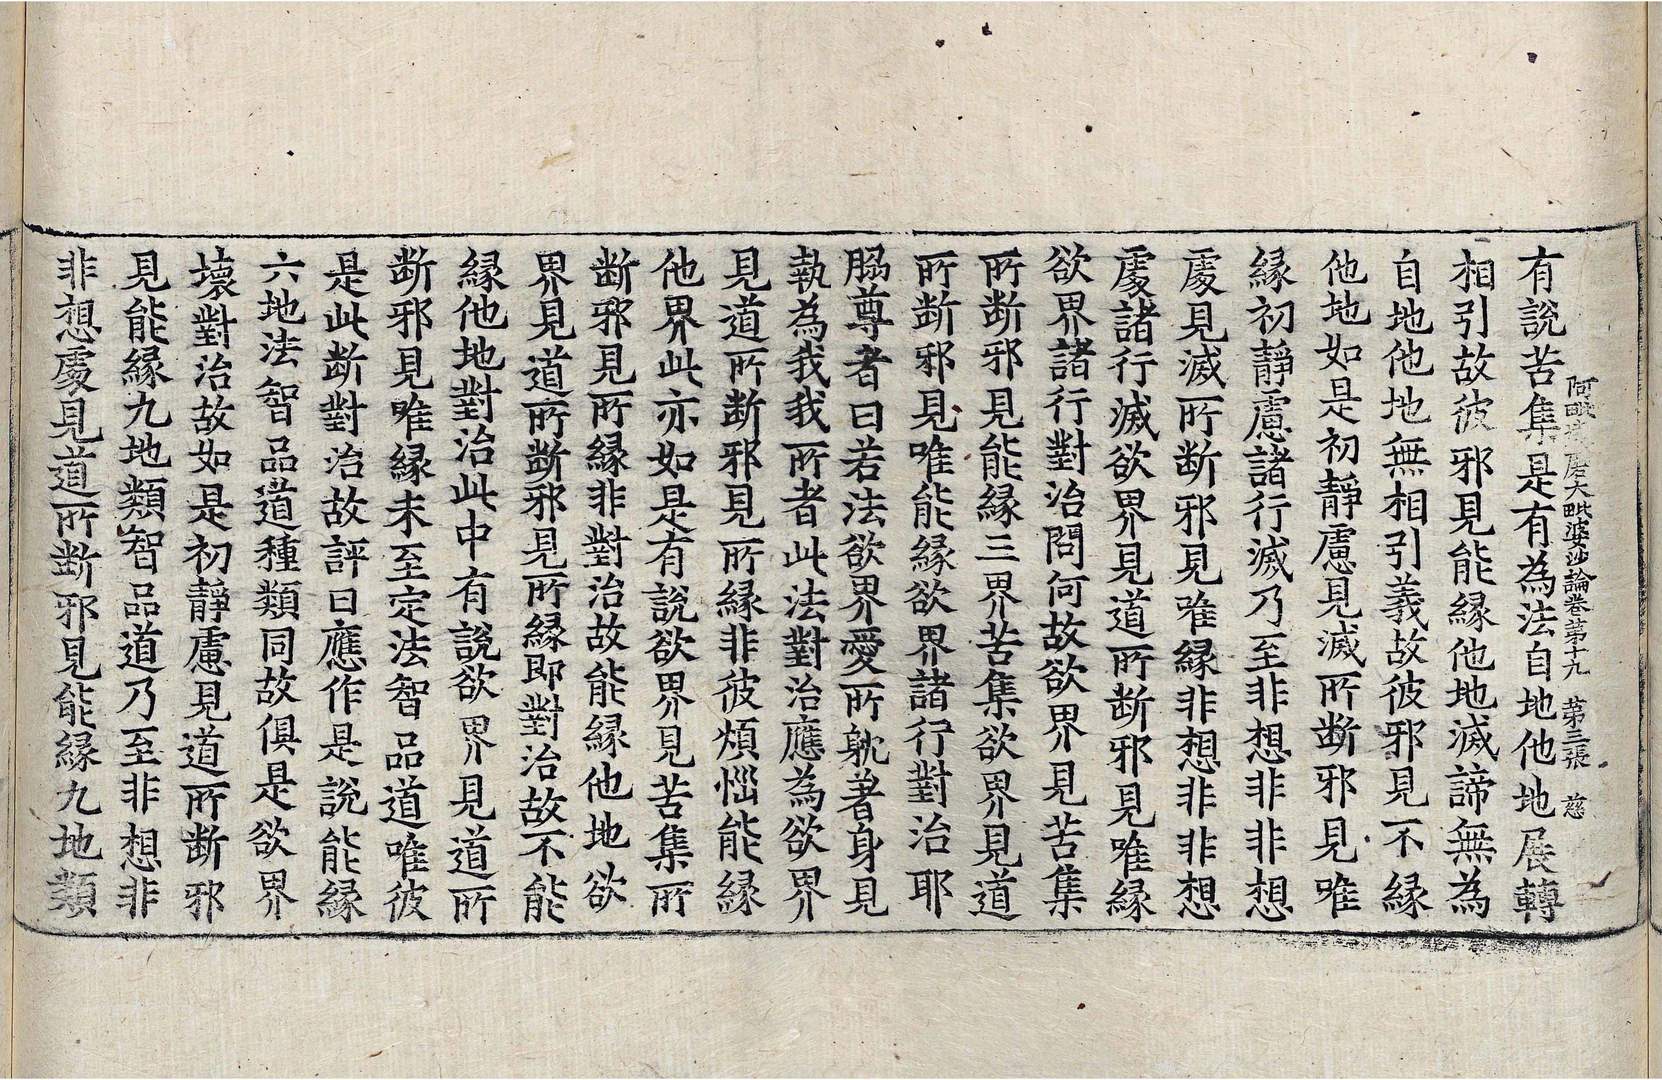 阿毗達磨大毗婆沙論卷第十九　第三張　慈
有說苦集是有為法自地他地展轉
相引故彼邪見能緣他地滅諦無為
自地他地無相引義故彼邪見不緣
他地如是初靜慮見滅所斷邪見唯
緣初靜慮諸行滅乃至非想非非想
處見滅所斷邪見唯緣非想非非想
處諸行滅欲界見道所斷邪見唯緣
欲界諸行對治問何故欲界見苦集
所斷邪見能緣三界苦集欲界見道
所斷邪見唯能緣欲界諸行對治耶
脇尊者曰若法欲界愛所躭著身見
執為我我所者此法對治應為欲界
見道所斷邪見所緣非彼煩惱能緣
他界此亦如是有說欲界見苦集所
斷邪見所緣非對治故能緣他地欲
界見道所斷邪見所緣即對治故不能
緣他地對治此中有說欲界見道所
斷邪見唯緣未至定法智品道唯彼
是此斷對治故評曰應作是說能緣
六地法智品道種類同故俱是欲界
壞對治故如是初靜慮見道所斷邪
見能緣九地類智品道乃至非想非
非想處見道所斷邪見能緣九地類